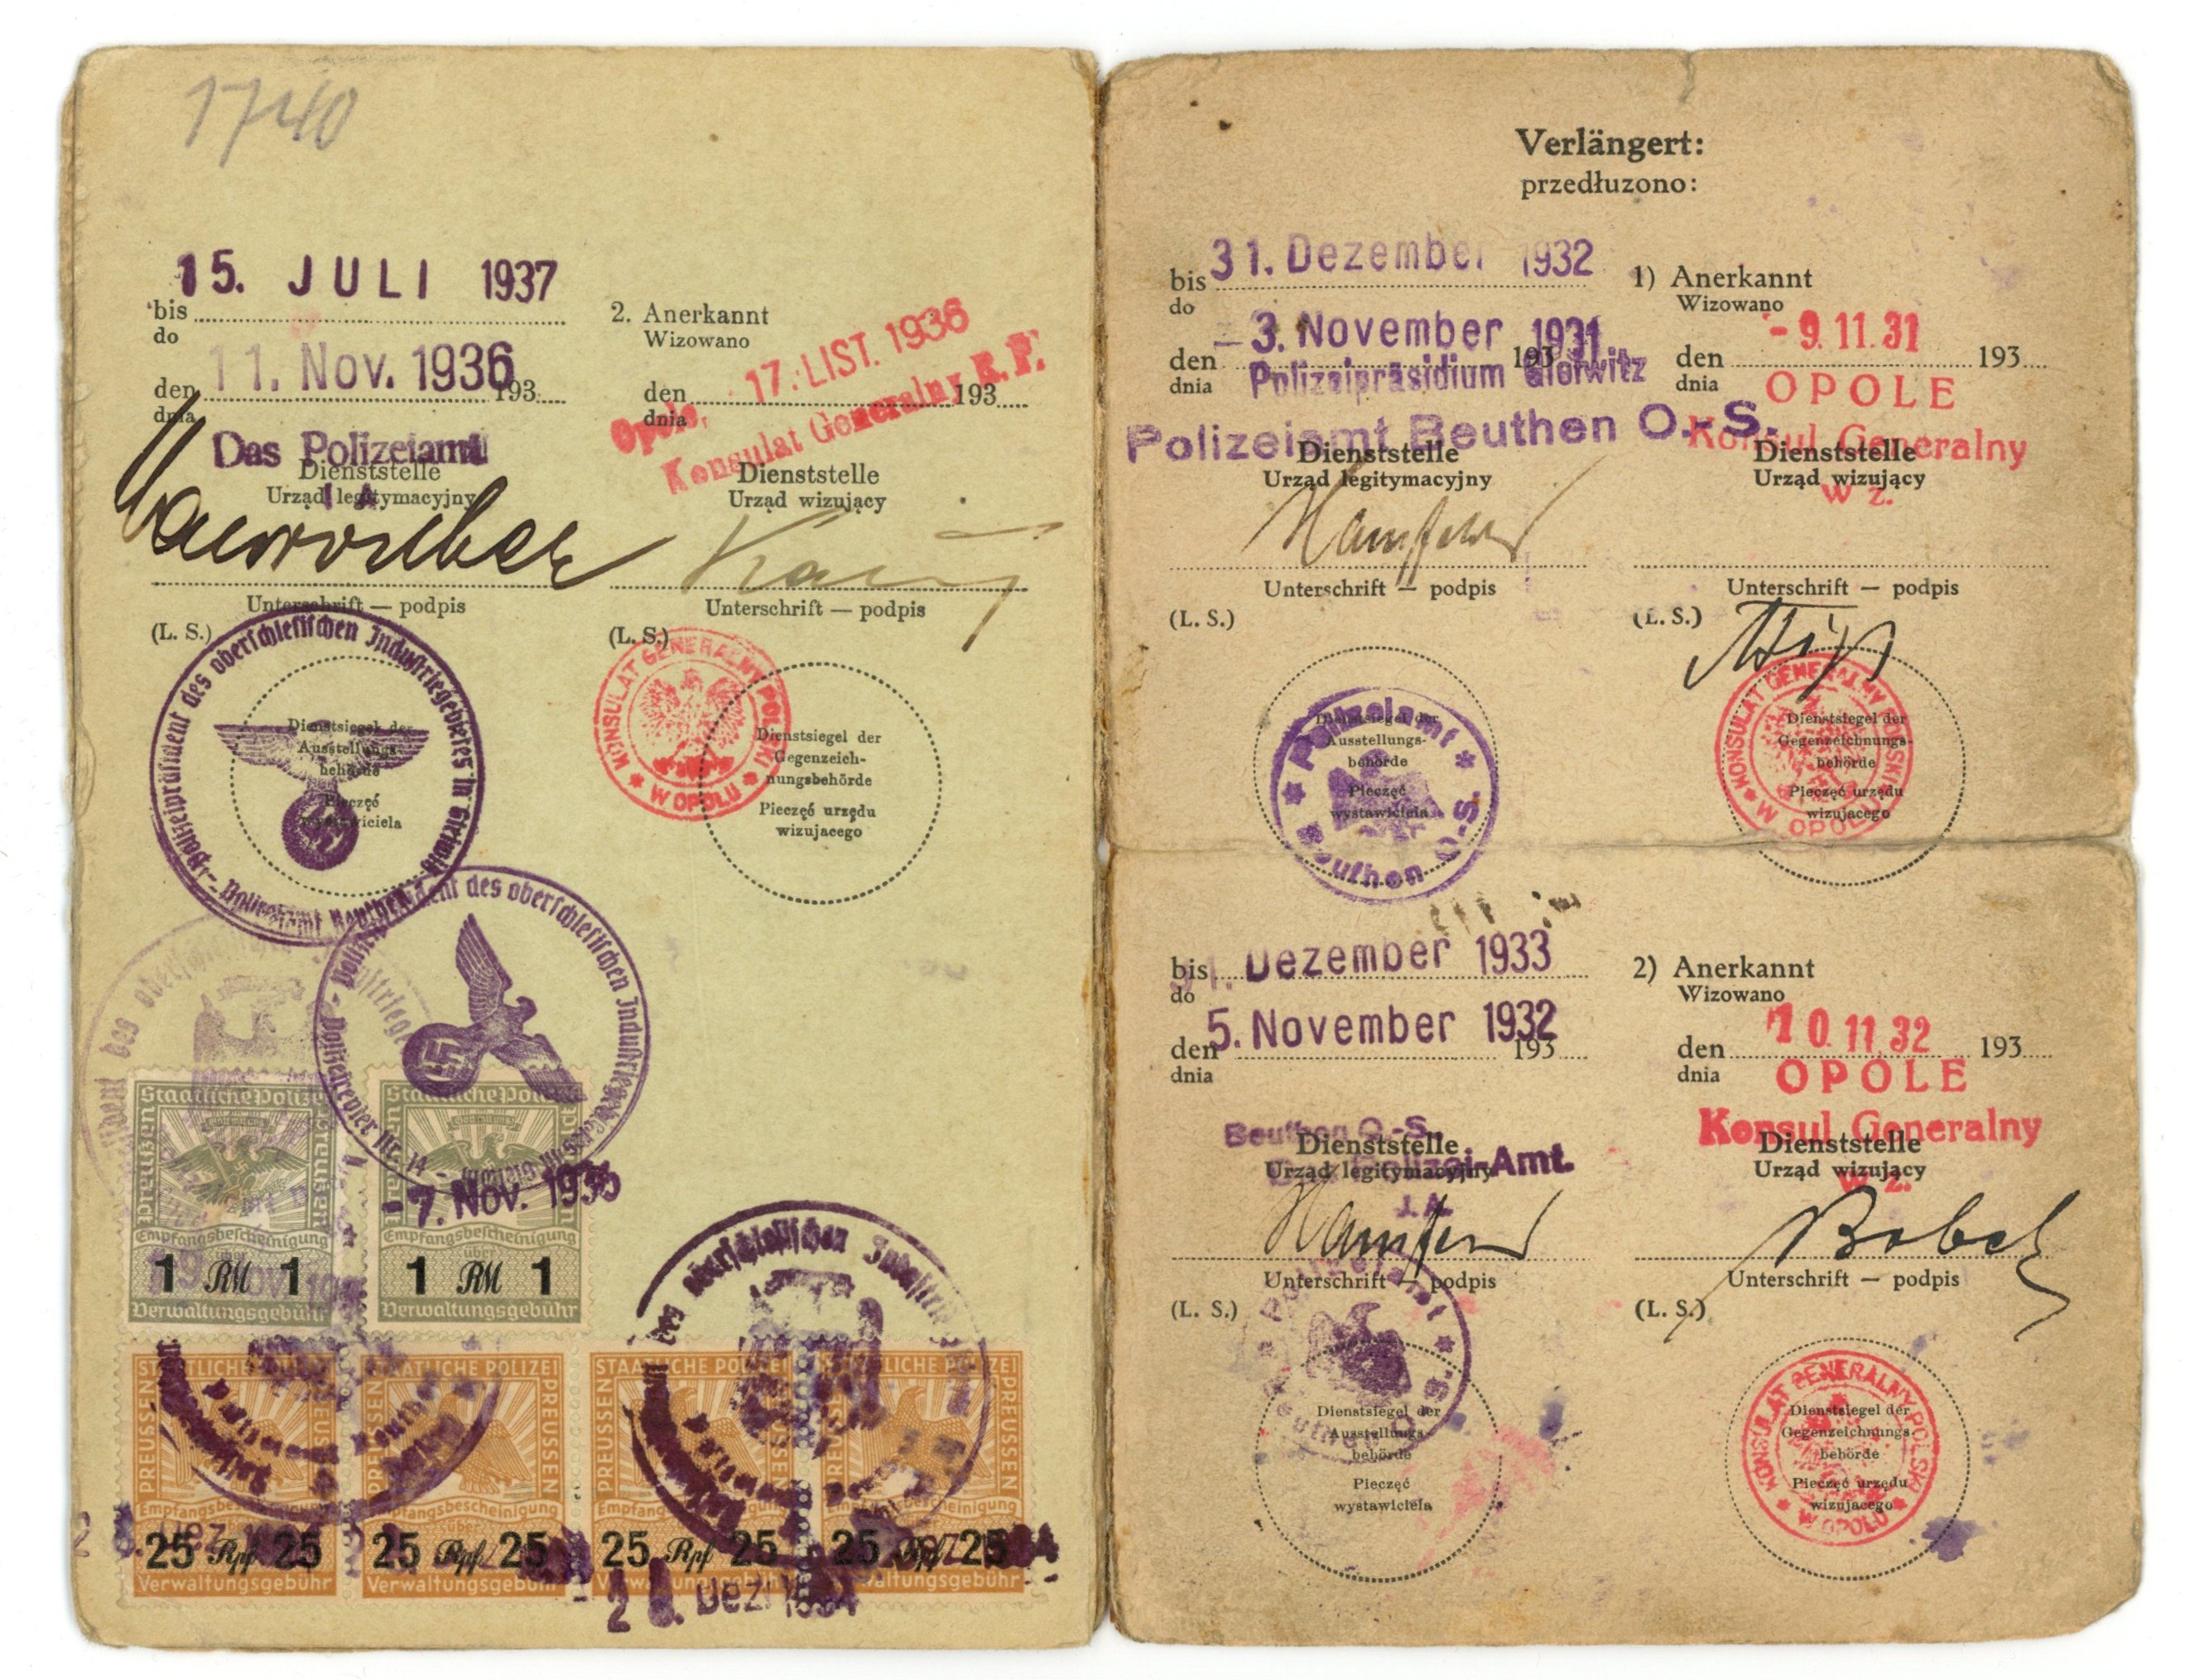 1740
15. JULI 1937
bis
do
11. Nov. 1936
den 193
dnia
Das Polizeiamt
Dienststelle
Urząd legitymacyjny
I. A.
Unterschrift — podpis
(L. S.)
2. Anerkannt
Wizowano
17. LIST. 1936
den 193
dnia
Opole,
Konsulat Generalny R. P.
Dienststelle
Urząd wizujący
Unterschrift — podpis
(L. S.)
Polizeipräsident des oberschlesischen Industriegebietes in Gleiwitz
Polizeiamt Beuthen
Dienstsiegel der
Ausstellungs-
behörde
Pieczęć
wystawiciela
KONSULAT GENERALNY POLSKI
W OPOLU
Dienstsiegel der
Gegenzeich-
nungsbehörde
Pieczęć urzędu
wizujacego
des oberschlesischen Industriege
Polizeirevier Nr. 14
Staatliche Polizei
Preußen
Empfangsbescheinigung
über
1 RM 1
Verwaltungsgebühr
Staatliche Polizei
Preußen
Empfangsbescheinigung
über
1 RM 1
Verwaltungsgebühr
-7. Nov. 1935
des oberschlesischen Industrie
STAATLICHE POLIZEI
PREUSSEN
Empfangsbescheinigung
25 Rpf 25
Verwaltungsgebühr
STAATLICHE POLIZEI
PREUSSEN
Empfangsbescheinigung
25 Rpf 25
Verwaltungsgebühr
STAATLICHE POLIZEI
PREUSSEN
Empfangsbescheinigung
25 Rpf 25
Verwaltungsgebühr
STAATLICHE POLIZEI
PREUSSEN
Empfangsbescheinigung
25 Rpf 25
Verwaltungsgebühr
Dez. 1934
Verlängert:
przedłuzono:
31. Dezember 1932
bis
do
- 3. November 1931
den 193
dnia
Polizeipräsidium Gleiwitz
Polizeiamt Beuthen O.-S.
Dienststelle
Urząd legitymacyjny
Unterschrift — podpis
(L. S.)
1) Anerkannt
Wizowano
- 9. 11. 31
den 193
dnia
OPOLE
Konsul Generalny
Dienststelle
Urząd wizujący
w z.
Unterschrift — podpis
(L. S.)
Polizeiamt
Beuthen O.-S.
Dienstsiegel der
Ausstellungs-
behörde
Pieczęć
wystawiciela
KONSULAT GENERALNY POLSKI
W OPOLU
Dienstsiegel der
Gegenzeichnungs-
behörde
Pieczęć urzędu
wizujacego
31. Dezember 1933
bis
do
5. November 1932
den 193
dnia
Beuthen O.-S.
Dienststelle
Polizei-Amt.
Urząd legitymacyjny
J. A.
Unterschrift — podpis
(L. S.)
2) Anerkannt
Wizowano
10 11 32
den 193
dnia
OPOLE
Konsul Generalny
Dienststelle
Urząd wizujący
w z.
Unterschrift — podpis
(L. S.)
Polizeiamt
Beuthen O.-S.
Dienstsiegel der
Ausstellungs-
behörde
Pieczęć
wystawiciela
KONSULAT GENERALNY POLSKI
W OPOLU
Dienstsiegel der
Gegenzeichnungs-
behörde
Pieczęć urzędu
wizujacego